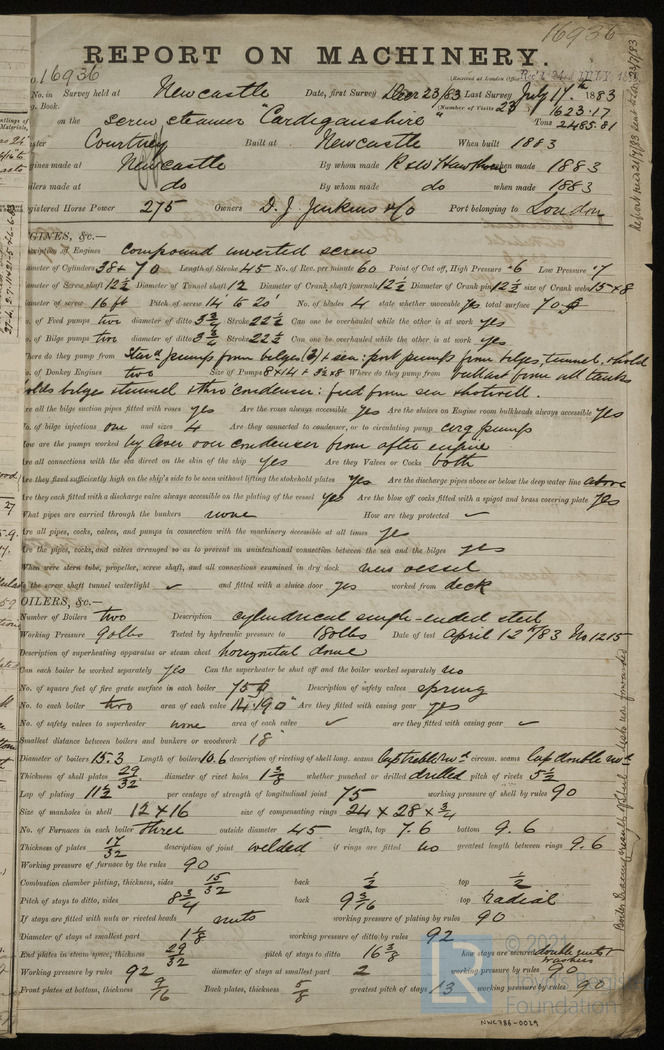 16936
REPORT ON MACHINERY.
16936
(Received at London Office
No. in Survey held at Newcastle Date, first Survey Decr 23/83 Last Survey July 17th 1883
Book. (Number of Visits 23
on the screw steamer "Cardiganshire" Tons 1623.17
2485.81
Courtney Built at Newcastle When built 1883
ngines made at Newcastle By whom made R & W Hawthorn when made 1883
oilers made at do By whom made do when made 1883
egistered Horse Power 275 Owners D. J. Jenkins & Co Port belonging to London
NGINES, &c.—
scription of Engines compound inverted screw
ameter of Cylinders 38 & 70 Length of Stroke 45 No. of Rev. per minute 60 Point of Cut off, High Pressure .6 Low Pressure .7
ameter of Screw shaft 12½ Diameter of Tunnel shaft 12 Diameter of Crank shaft journals 12½ Diameter of Crank pin 12½ size of Crank webs 15 x 8
ameter of screw 16 ft Pitch of screw 14' to 20' No. of blades 4 state whether moveable yes total surface 70
o. of Feed pumps two diameter of ditto 3¾ Stroke 22½ Can one be overhauled while the other is at work yes
o. of Bilge pumps two diameter of ditto 3¾ Stroke 22½ Can one be overhauled while the other is at work yes
here do they pump from Starbd pumps from bilges (3) & sea: port pumps from bilges, tunnel, & hold
o. of Donkey Engines two Size of Pumps 8 x 14 & 3½ x 8 Where do they pump from ballast from all tanks
holds bilge & tunnel & thro' condenser: feed from sea & hotwell.
re all the bilge suction pipes fitted with roses yes Are the roses always accessible yes Are the sluices on Engine room bulkheads always accessible yes
o. of bilge injections one and sizes 4 Are they connected to condenser, or to circulating pump circg pump
ow are the pumps worked by lever over condenser from after engine
re all connections with the sea direct on the skin of the ship yes Are they Valves or Cocks both
re they fixed sufficiently high on the ship's side to be seen without lifting the stokehold plates yes Are the discharge pipes above or below the deep water line above
re they each fitted with a discharge valve always accessible on the plating of the vessel yes Are the blow off cocks fitted with a spigot and brass covering plate yes
What pipes are carried through the bunkers none How are they protected ✓
re all pipes, cocks, valves, and pumps in connection with the machinery accessible at all times yes
re the pipes, cocks, and valves arranged so as to prevent an unintentional connection between the sea and the bilges yes
When were stern tube, propeller, screw shaft, and all connections examined in dry dock new vessel
the screw shaft tunnel watertight ✓ and fitted with a sluice door yes worked from deck
OILERS, &c.—
Number of Boilers two Description cylindrical single-ended steel
Working Pressure 90lbs Tested by hydraulic pressure to 180lbs Date of test April 12th/83 No 1215
Description of superheating apparatus or steam chest horizontal dome
Can each boiler be worked separately yes Can the superheater be shut off and the boiler worked separately no
No. of square feet of fire grate surface in each boiler 75 Description of safety valves spring
No. to each boiler two area of each valve 14.190" Are they fitted with easing gear yes
No. of safety valves to superheater none area of each valve ✓ are they fitted with easing gear ✓
Smallest distance between boilers and bunkers or woodwork 18"
Diameter of boilers 15.3 Length of boilers 10.6 description of riveting of shell long. seams lap treble rivd circum. seams lap double rivd
Thickness of shell plates 29/32 diameter of rivet holes 1⅜ whether punched or drilled drilled pitch of rivets 5½
Lap of plating 11½ per centage of strength of longitudinal joint 75 working pressure of shell by rules 90
Size of manholes in shell 12 x 16 size of compensating rings 24 x 28 x ¾
No. of Furnaces in each boiler three outside diameter 45 length, top 7.6 bottom 9.6
Thickness of plates 17/32 description of joint welded if rings are fitted no greatest length between rings 9.6
Working pressure of furnace by the rules 90
Combustion chamber plating, thickness, sides 15/32 back ½ top ½
Pitch of stays to ditto, sides 8¾ back 9 3/16 top radial
If stays are fitted with nuts or riveted heads nuts working pressure of plating by rules 90
Diameter of stays at smallest part 1⅛ working pressure of ditto by rules 92
End plates in steam space, thickness 29/32 pitch of stays to ditto 16⅜ how stays are secured double nuts & washers
Working pressure by rules 92 diameter of stays at smallest part 2 working pressure by rules 90
Front plates at bottom, thickness 9/16 Back plates, thickness ⅝ greatest pitch of stays 13 working pressure by rules 90
© 2021
Lloyd's Register
Foundation
NWC786-0029